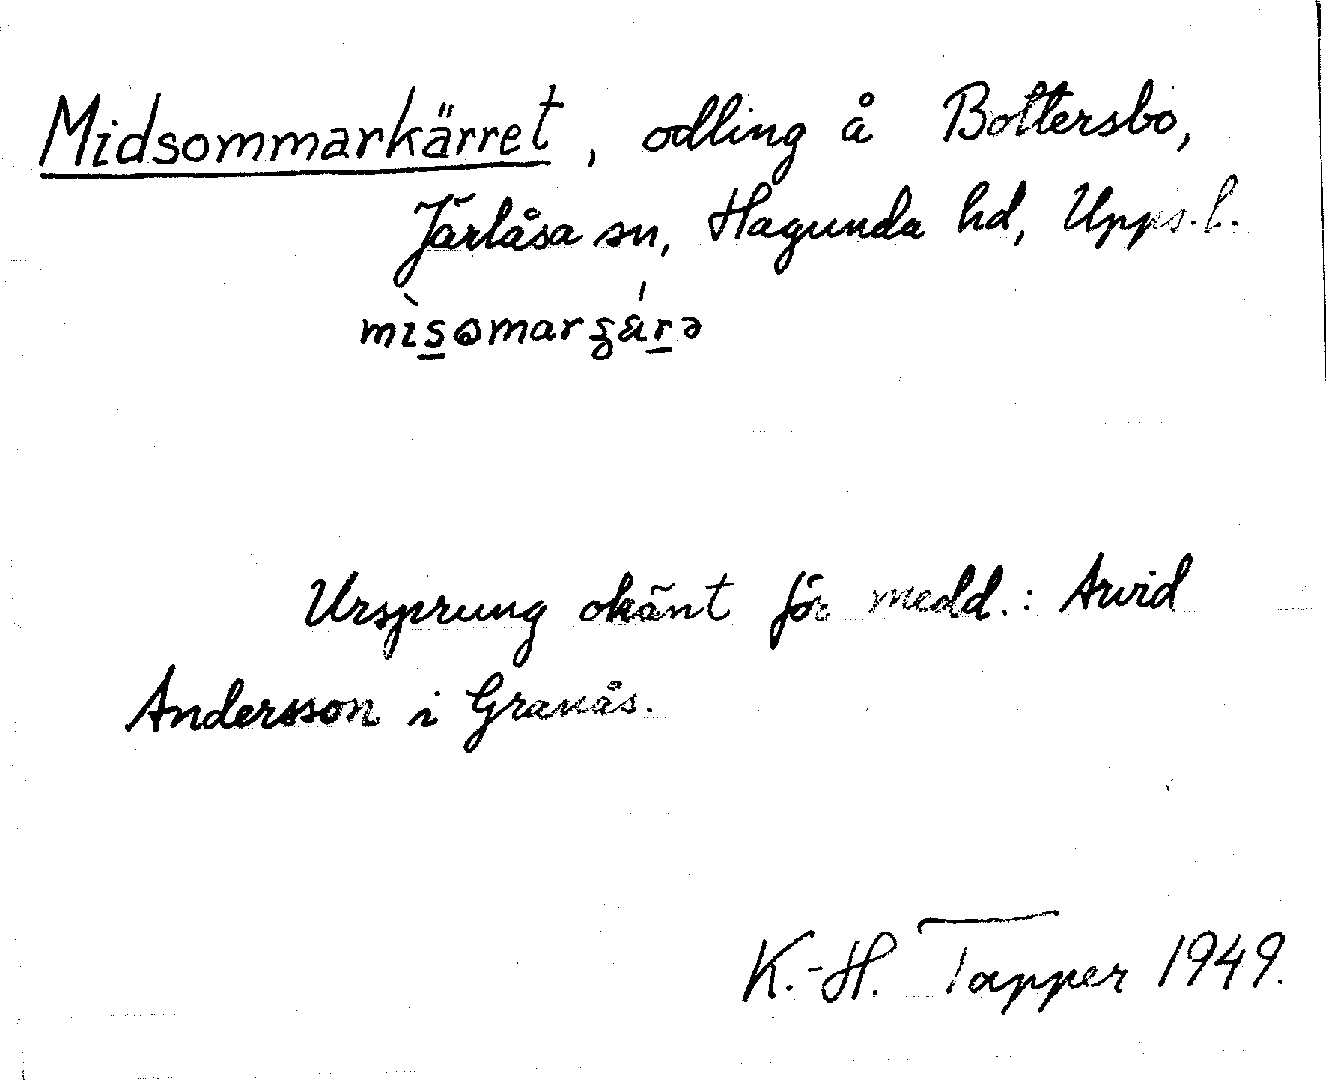 Midsommarkärret, odling å Bottersbo,
Järlåsa sn, Hagunda hd, Upps. l.
Ursprung okänt för medd.: Arvid
Andersson i Granås.
K.-H. Tapper 1949.